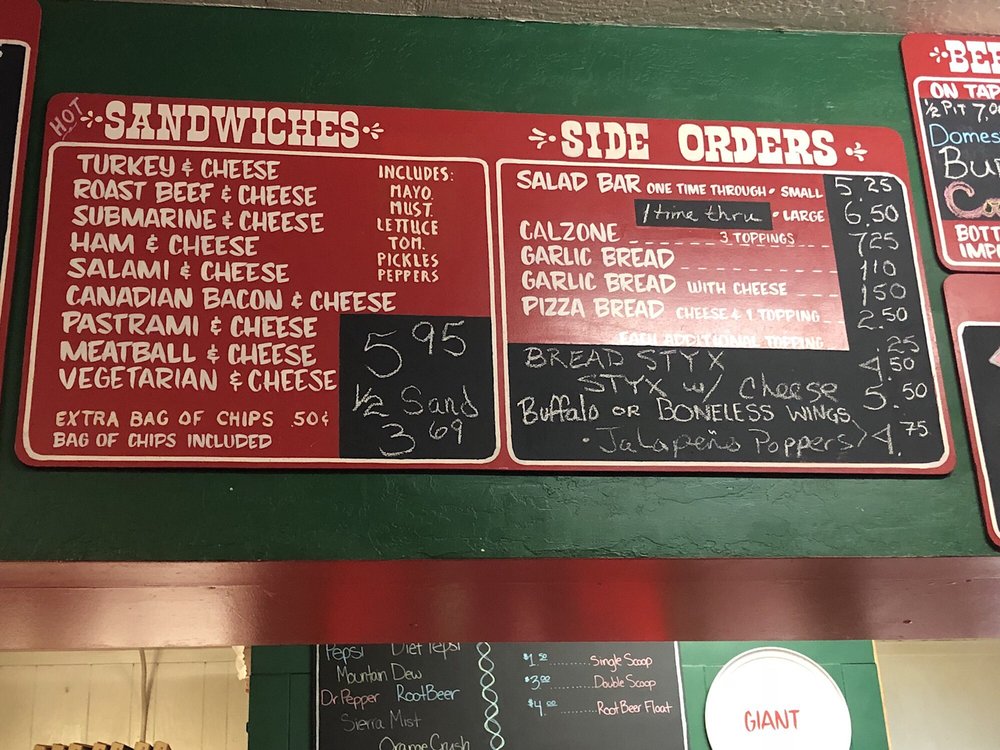 HOT SANDWICHES
TURKEY & CHEESE
ROAST BEEF & CHEESE
SUBMARINE & CHEESE
HAM & CHEESE
SALAMI & CHEESE
CANADIAN BACON & CHEESE
PASTRAMI & CHEESE
MEATBALL & CHEESE
VEGETARIAN & CHEESE
INCLUDES:
MAYO.
MUST.
LETTUCE
TOM.
PICKLES
PEPPERS
5 95
1/2 Sand
3 69
EXTRA BAG OF CHIPS .50¢
BAG OF CHIPS INCLUDED
SIDE ORDERS
SALAD BAR ONE TIME THROUGH • SMALL 5.25
1 time thru • LARGE 6.50
CALZONE 3 TOPPINGS 7.25
GARLIC BREAD 1.10
GARLIC BREAD WITH CHEESE 1.50
PIZZA BREAD CHEESE & 1 TOPPING 2.50
EACH ADDITIONAL TOPPING .25
BREAD STYX 4.50
STYX w/ Cheese 5.50
Buffalo OR BONELESS WINGS
• Jalapeño Poppers } 4.75
ON TAP
1/2 PIT
Pepsi Diet Pepsi
Mountain Dew
Dr Pepper Root Beer
Sierra Mist
Orange Crush
$1.50 .......... Single Scoop
$3.00 .......... Double Scoop
$4.00 .......... Root Beer Float
GIANT